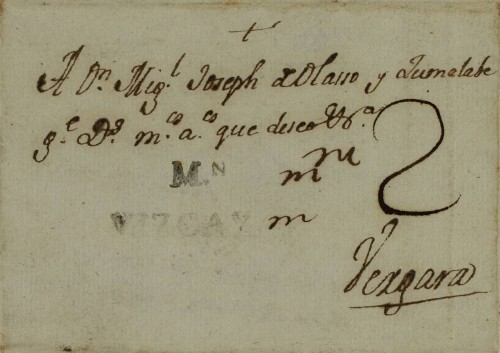 +
A Dn. Migl. Joseph de Olaso y Zumalabe
ge. Ds. ms. as. que deseo Vra.
M.N
mu
m
2
VIZCAY
m
Vergara